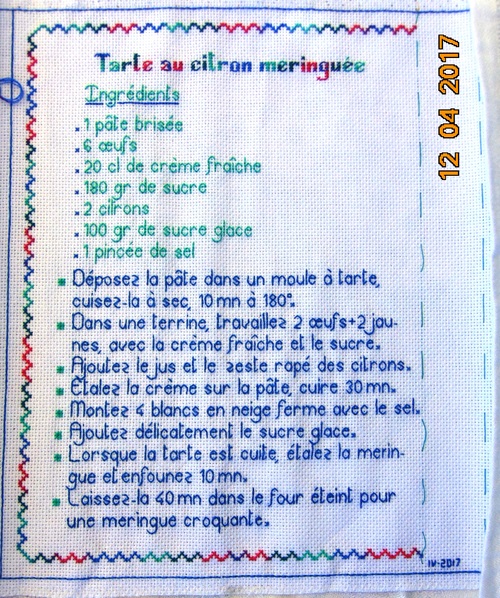 Tarte au citron meringuée
Ingrédients
. 1 pâte brisée
. 6 œufs
. 20 cl de crème fraîche
. 180 gr de sucre
. 2 citrons
. 100 gr de sucre glace
. 1 pincée de sel
▪ Déposez la pâte dans un moule à tarte,
cuisez-la à sec, 10 mn à 180°.
▪ Dans une terrine, travaillez 2 œufs+2 jau-
nes, avec la crème fraîche et le sucre.
▪ Ajoutez le jus et le zeste rapé des citrons.
▪ Étalez la crème sur la pâte, cuire 30 mn.
▪ Montez 4 blancs en neige ferme avec le sel.
▪ Ajoutez délicatement le sucre glace.
▪ Lorsque la tarte est cuite, étalez la merin-
gue et enfounez 10 mn.
▪ Laissez-la 40 mn dans le four éteint pour
une meringue croquante.
IV-2017
12 04 2017